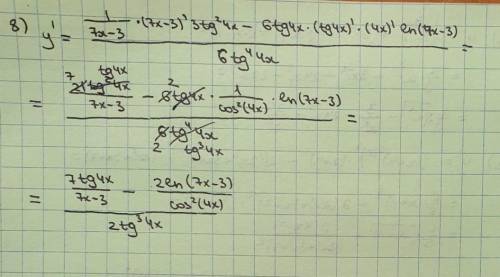 8) y' = (1/(7x-3) · (7x-3)' 3tg²4x - 6tg4x · (tg4x)' · (4x)' ln(7x-3)) / (6tg⁴4x) =
= (7 21 tg4x tg²4x/(7x-3) - 2 6tg4x · 1/cos²(4x) · ln(7x-3)) / (6tg⁴4x 2 tg³4x) =
= (7tg4x/(7x-3) - 2ln(7x-3)/cos²(4x)) / (2tg³4x)